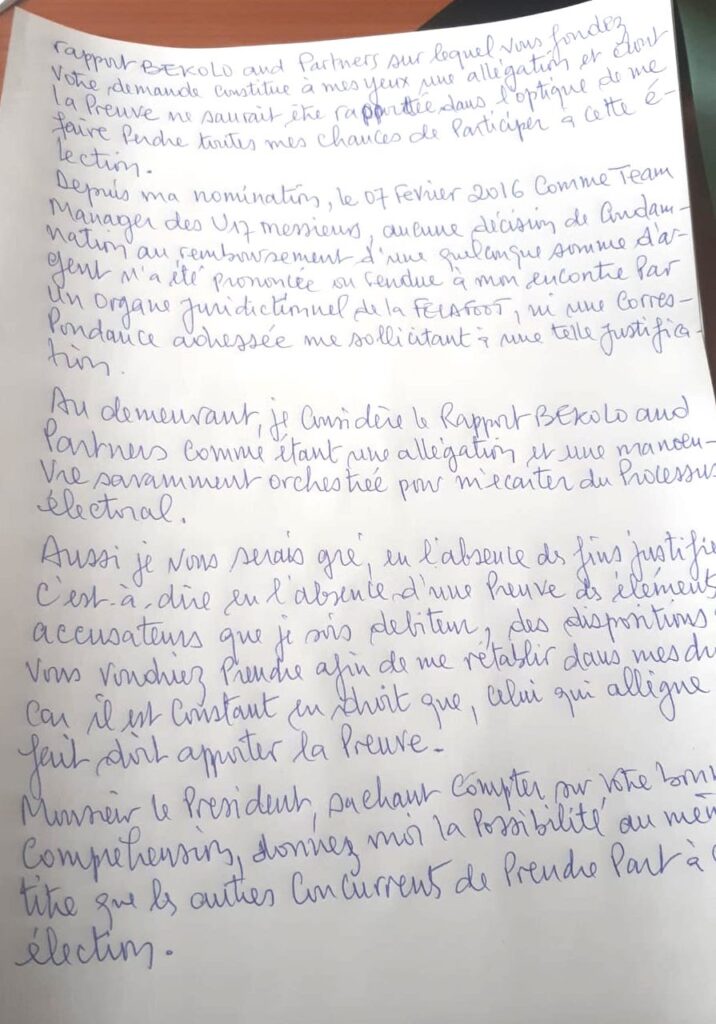 rapport BEKOLO and Partners sur lequel vous fondez
votre demande constitue à mes yeux une allégation et dont
la Preuve ne saurait être rapportée dans l'optique de me
faire Perdre toutes mes chances de Participer à cette é-
lection.
Depuis ma nomination, le 07 Fevrier 2016 Comme Team
Manager des U17 messieurs, aucune décision de Condam-
nation au remboursement d'une quelconque somme d'ar-
gent n'a été prononcée ou rendue à mon encontre Par
un organe Juridictionnel de la FECAFOOT, ni une Corres-
Pondance adressée me sollicitant à une telle Justifica-
tion.
Au demeurant, je Considère le Rapport BEKOLO and
Partners Comme étant une allégation et une manoeu-
vre savamment orchestrée pour m'écarter du Processus
électoral.
Aussi je vous serais gré, en l'absence des fins justifie
c'est-à-dire en l'absence d'une Preuve des éléments
accusateurs que je suis debiteur, des dispositions
vous voudriez Prendre afin de me rétablir dans mes
Car il est Constant en droit que, celui qui allègue
fait doit apporter la Preuve.
Monsieur le President, sachant Compter sur votre bonne
Compréhension, donnez moi la Possibilité au même
titre que les autres Concurrent de Prendre Part à
élection.